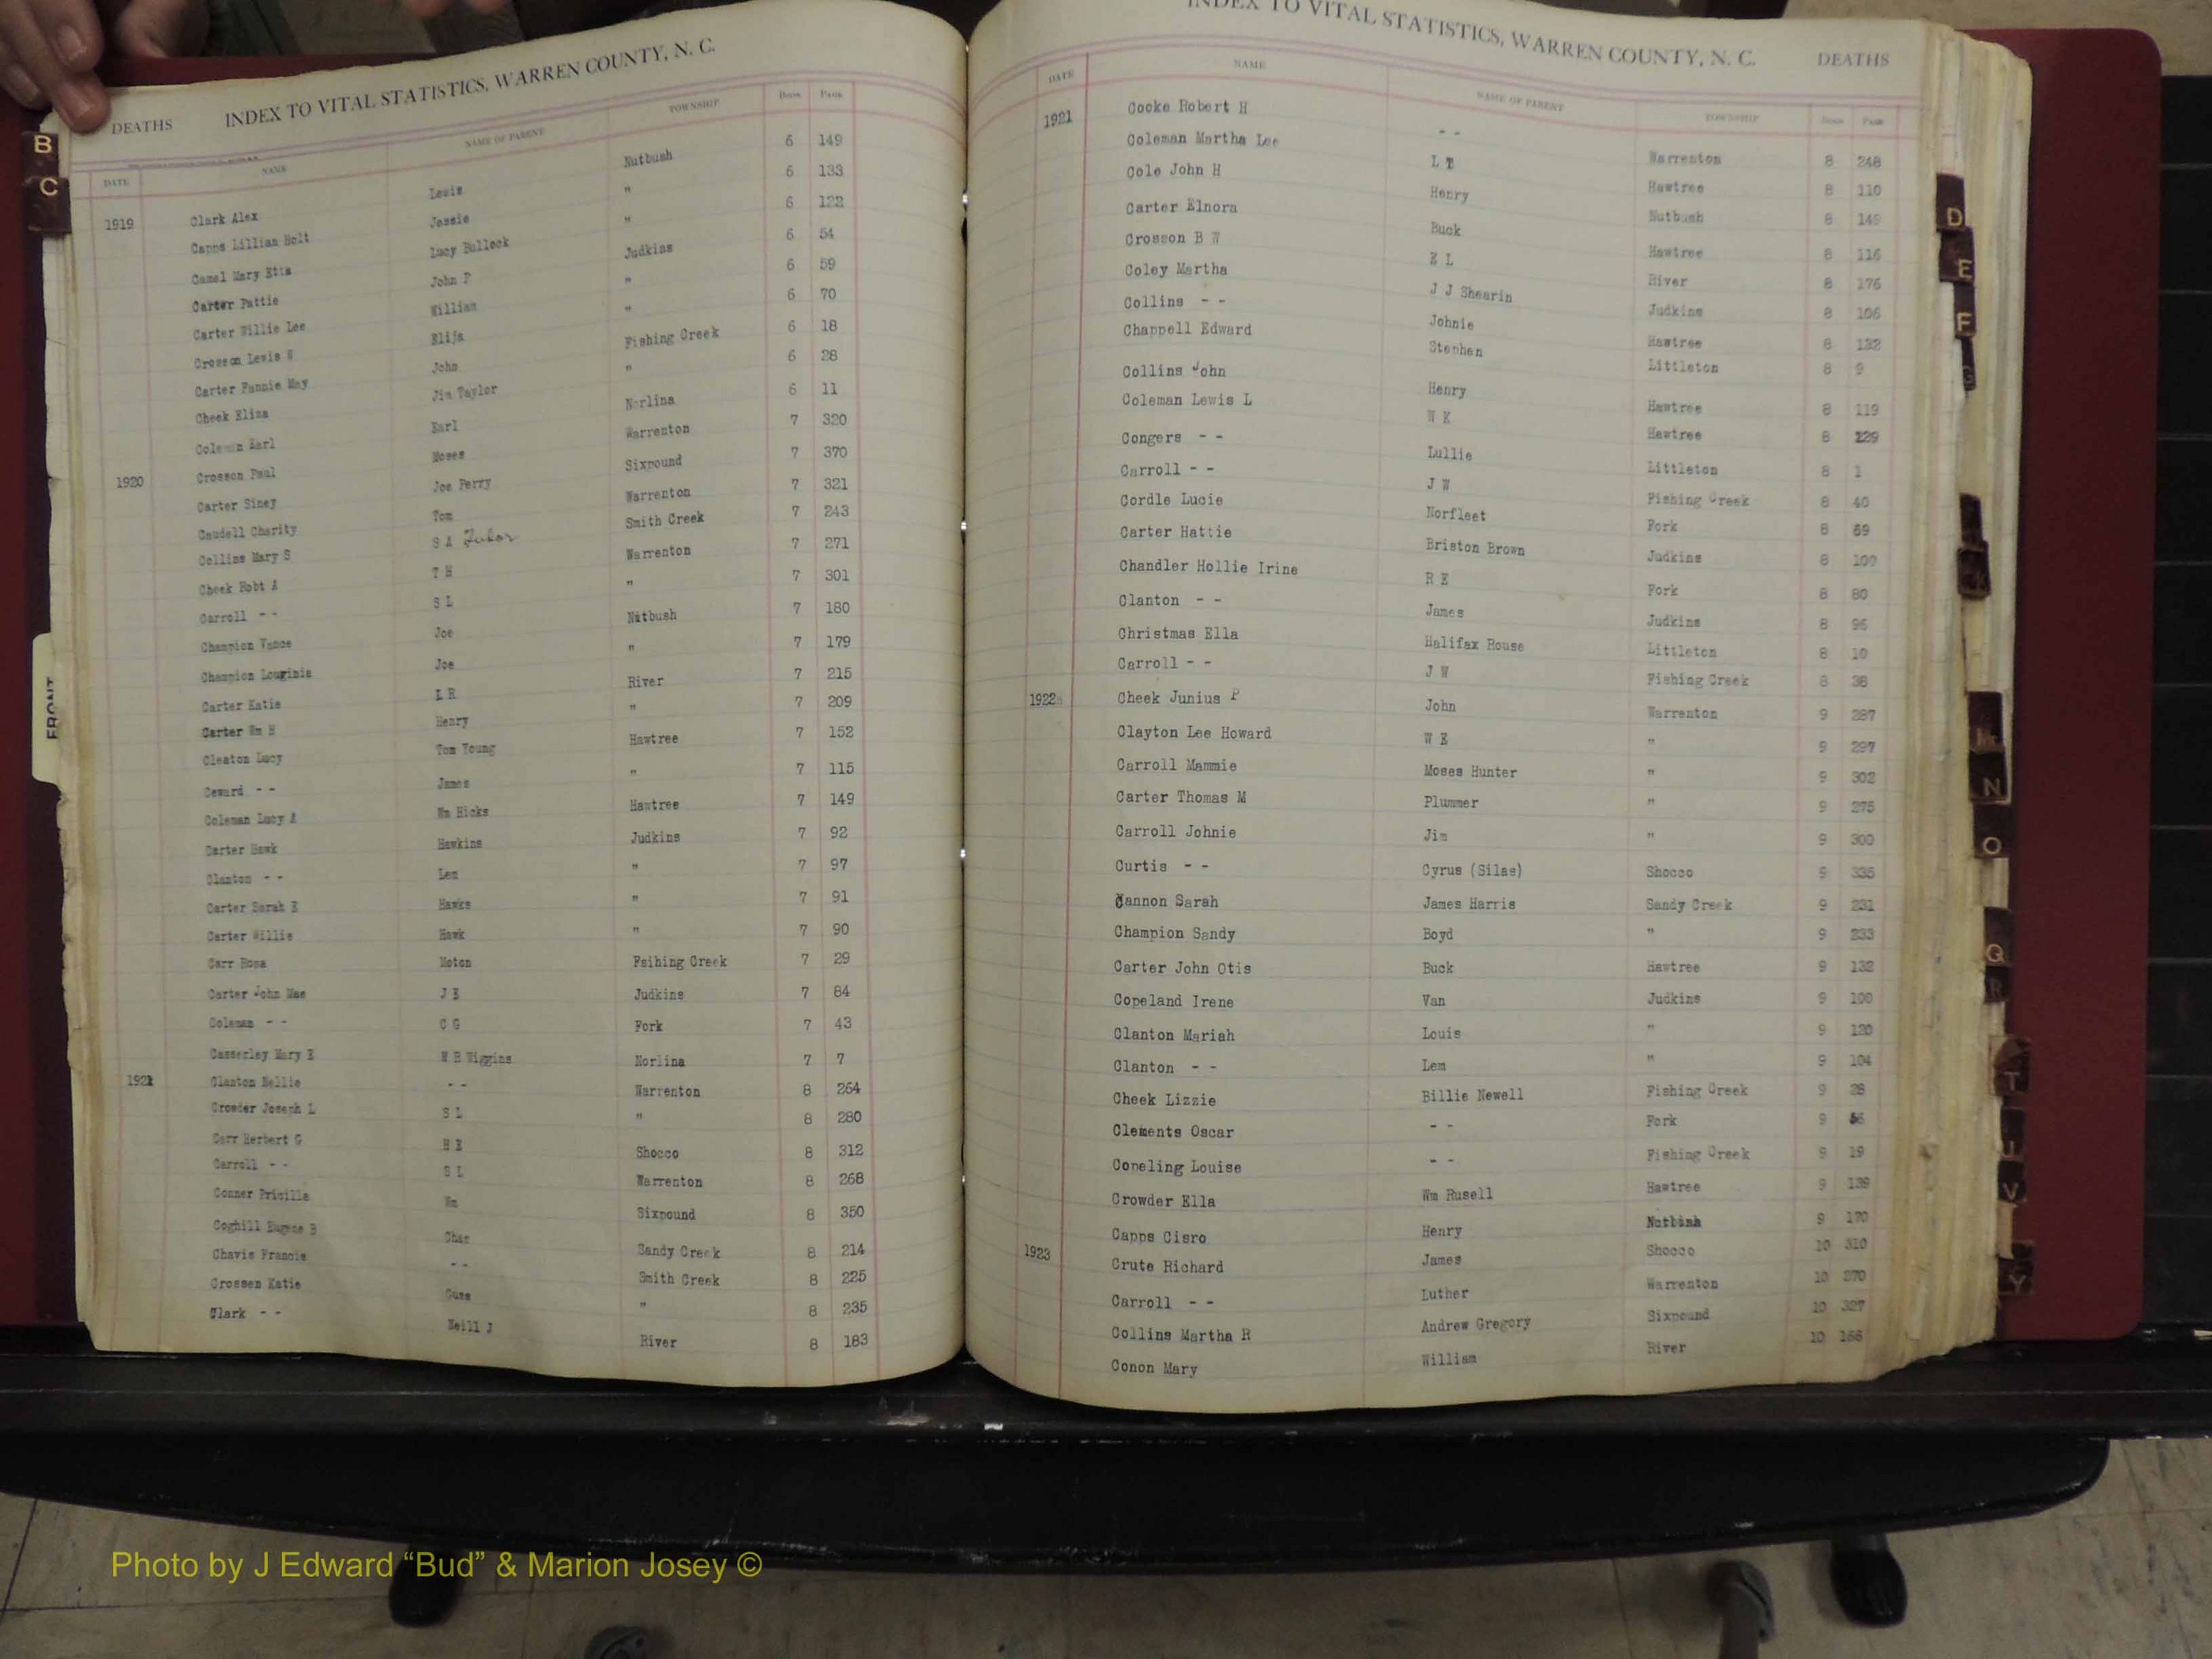 INDEX TO VITAL STATISTICS, WARREN COUNTY, N. C.
DEATHS
DATE NAME NAME OF PARENT TOWNSHIP Book Page
1919 Clark Alex Lewis Nutbush 6 149
Capps Lillian Holt Jessie " 6 133
Camel Mary Etta Lucy Bullock " 6 122
Carter Pattie John P Judkins 6 54
Carter Willie Lee William " 6 59
Crosson Lewis W Elija " 6 70
Carter Fannie May John Fishing Creek 6 18
Cheek Eliza Jim Taylor " 6 28
Coleman Earl Earl Norlina 6 11
1920 Crosson Paul Moses Warrenton 7 320
Carter Siney Joe Perry Sixpound 7 370
Caudell Charity Tom Warrenton 7 321
Collins Mary S S A Smith Creek 7 243
Cheek Robt A T H Warrenton 7 271
Carroll - - S L " 7 301
Champion Vance Joe Nutbush 7 180
Champion Louginia Joe " 7 179
Carter Katie L R River 7 215
Carter Wm H Henry " 7 209
Cleaton Lucy Tom Young Hawtree 7 152
Coward - - James " 7 115
Coleman Lucy A Wm Hicks Hawtree 7 149
Carter Hawk Hawkins Judkins 7 92
Clanton - - Lem " 7 97
Carter Sarah E Hawks " 7 91
Carter Willie Hawk " 7 90
Carr Rosa Moton Fsihing Creek 7 29
Carter John Mae J E Judkins 7 84
Coleman - - C G Fork 7 43
Casserley Mary E W R Wiggins Norlina 7 7
1921 Clanton Nellie - - Warrenton 8 264
Crowder Joseph L S L " 8 280
Carr Herbert G H E Shocco 8 312
Carroll - - S L Warrenton 8 268
Conner Pricilla Wm Sixpound 8 350
Coghill Eugene B Chas Sandy Creek 8 214
Chavis Francis - - Smith Creek 8 225
Crossen Katie Guss " 8 235
Clark - - Neill J River 8 183
INDEX TO VITAL STATISTICS, WARREN COUNTY, N. C. DEATHS
DATE NAME NAME OF PARENT TOWNSHIP Book Page
1921 Cooke Robert H - - Warrenton 8 248
Coleman Martha Lee L T Hawtree 8 110
Cole John H Henry Nutbush 8 149
Carter Elnora Buck Hawtree 8 116
Crosson B W E L River 8 176
Coley Martha J J Shearin Judkins 8 106
Collins - - Johnie Hawtree 8 132
Chappell Edward Stephen Littleton 8 9
Collins John Henry Hawtree 8 119
Coleman Lewis L W K Hawtree 8 129
Congers - - Lullie Littleton 8 1
Carroll - - J W Fishing Creek 8 40
Cordle Lucie Norfleet Fork 8 69
Carter Hattie Briston Brown Judkins 8 100
Chandler Hollie Irine R E Fork 8 80
Clanton - - James Judkins 8 96
Christmas Ella Halifax Rouse Littleton 8 10
Carroll - - J W Fishing Creek 8 38
1922 Cheek Junius P John Warrenton 9 287
Clayton Lee Howard W E " 9 297
Carroll Mammie Moses Hunter " 9 302
Carter Thomas M Plummer " 9 275
Carroll Johnie Jim " 9 300
Curtis - - Cyrus (Silas) Shocco 9 335
Cannon Sarah James Harris Sandy Creek 9 231
Champion Sandy Boyd " 9 233
Carter John Otis Buck Hawtree 9 132
Copeland Irene Van Judkins 9 100
Clanton Mariah Louis " 9 120
Clanton - - Lem " 9 104
Cheek Lizzie Billie Newell Fishing Creek 9 28
Clements Oscar - - Fork 9
Copeling Louise - - Fishing Creek 9 19
Crowder Ella Wm Rusell Hawtree 9 139
Capps Cisro Henry Nutbush 9 170
1923 Crute Richard James Shocco 10 310
Carroll - - Luther Warrenton 10 270
Collins Martha R Andrew Gregory Sixpound 10 327
Conon Mary William River 10 166
B
C
FRONT
D
E
F
G
K
N
O
Q
R
T
U
V
Y
Photo by J Edward “Bud” & Marion Josey ©